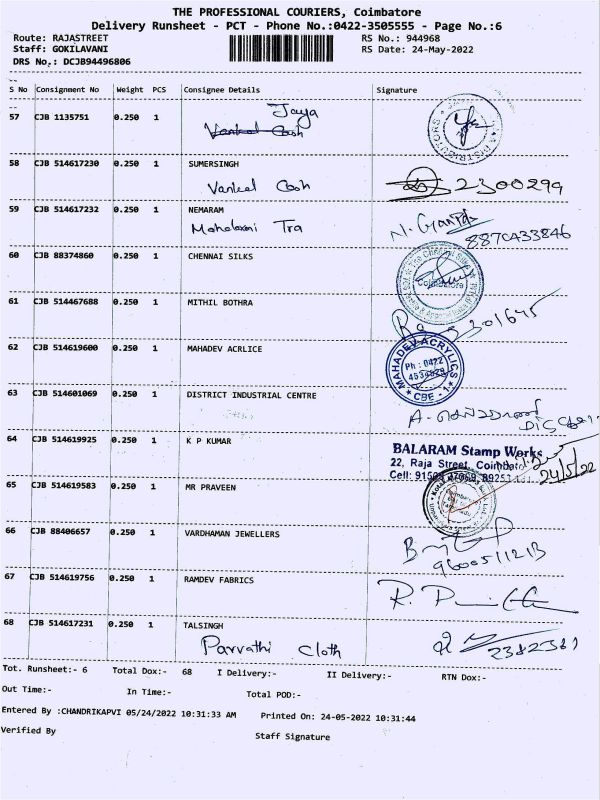 THE PROFESSIONAL COURIERS, Coimbatore
Delivery Runsheet - PCT - Phone No.:0422-3505555 - Page No.:6
Route: RAJASTREET RS No.: 944968
Staff: GOKILAVANI RS Date: 24-May-2022
DRS No.: DCJB94496806
S No Consignment No Weight PCS Consignee Details Signature
57 CJB 1135751 0.250 1 Jaya
Vankel Cosh
58 CJB 514617230 0.250 1 SUMERSINGH
Vankel Cosh 2300299
59 CJB 514617232 0.250 1 NEMARAM
Mahalaxmi Tra 8870433846
60 CJB 88374860 0.250 1 CHENNAI SILKS
The Chennai Silks
Coimbatore
61 CJB 514467688 0.250 1 MITHIL BOTHRA
301645
62 CJB 514619600 0.250 1 MAHADEV ACRLICE
MAHADEV ACRYLICS
Ph : 0422
CBE - 1
63 CJB 514601069 0.250 1 DISTRICT INDUSTRIAL CENTRE
64 CJB 514619925 0.250 1 K P KUMAR
BALARAM Stamp Works
22, Raja Street, Coimbato
24/5/22
65 CJB 514619583 0.250 1 MR PRAVEEN
66 CJB 88406657 0.250 1 VARDHAMAN JEWELLERS
9600511213
67 CJB 514619756 0.250 1 RAMDEV FABRICS
68 CJB 514617231 0.250 1 TALSINGH
Parvathi Cloth 2382381
Tot. Runsheet:- 6 Total Dox:- 68 I Delivery:- II Delivery:- RTN Dox:-
Out Time:- In Time:- Total POD:-
Entered By :CHANDRIKAPVI 05/24/2022 10:31:33 AM Printed On: 24-05-2022 10:31:44
Verified By Staff Signature